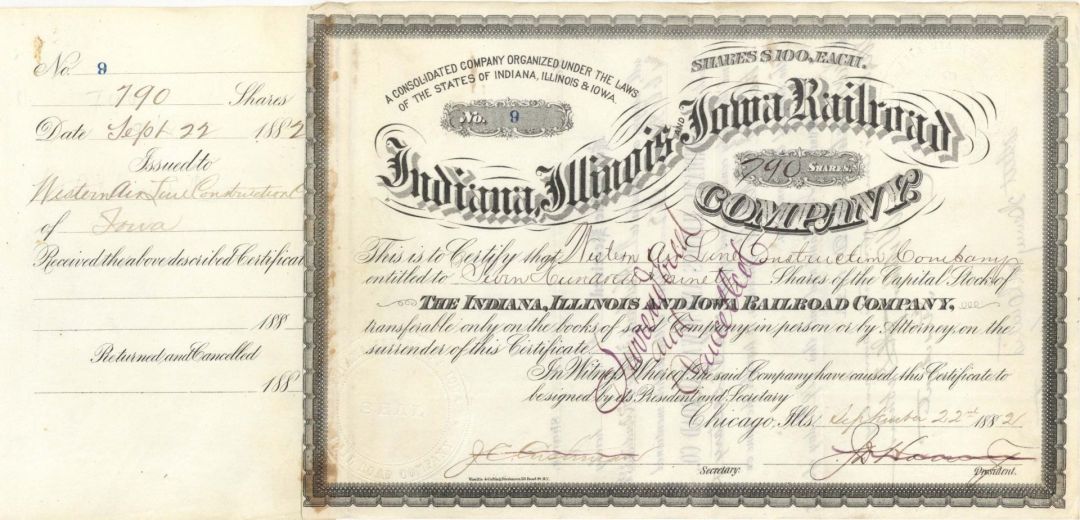 No. 9
790 Shares
Date Sept 22 1882
Issued to
Western Air Line Construction C
of Iowa
Received the above described Certificat
188
Returned and Cancelled
188
A CONSOLIDATED COMPANY ORGANIZED UNDER THE LAWS
OF THE STATES OF INDIANA, ILLINOIS & IOWA.
No. 9
SHARES $100, EACH.
Indiana, Illinois AND Iowa Railroad
790 SHARES.
COMPANY.
This is to Certify that Western Air Line Construction Company
entitled to Seven Hundred Ninety Shares of the Capital Stock of
THE INDIANA, ILLINOIS AND IOWA RAILROAD COMPANY,
transferable only on the books of said Company, in person or by Attorney, on the
surrender of this Certificate.
In Witness Whereof The said Company have caused this Certificate to
be signed by its President and Secretary
Chicago, Ills. September 22nd 1882
Secretary.
President.
Surrendered
and
Cancelled